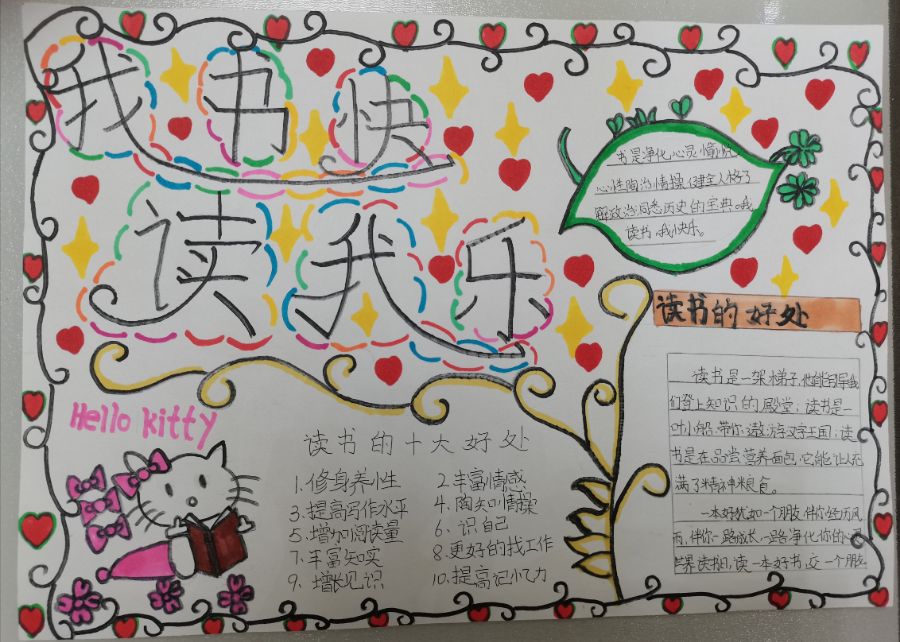 我书快
读我乐
书是净化心灵愉悦
心性陶冶情操健全人格了
解政治洞悉历史的宝典。我
读书。我快乐。
读书的好处
读书是一架梯子,他能引导我
们登上知识的殿堂;读书是一
叶小船,带你遨游汉字王国;读
书是在品尝营养面包,它能让充
满了精神粮食。
一本好犹如一个朋友,伴你经历风
雨,伴你一路成长,一路净化你的心灵
世界读书日,读一本好书,交一个朋友
Hello kitty
读书的十大好处
1.修身养小生
2.丰富情感
3.提高写作水平
4.陶知情操
5.增加阅读量
6.识自己
7.丰富知实
8.更好的找工作
9.增长见识
10.提高记忆力